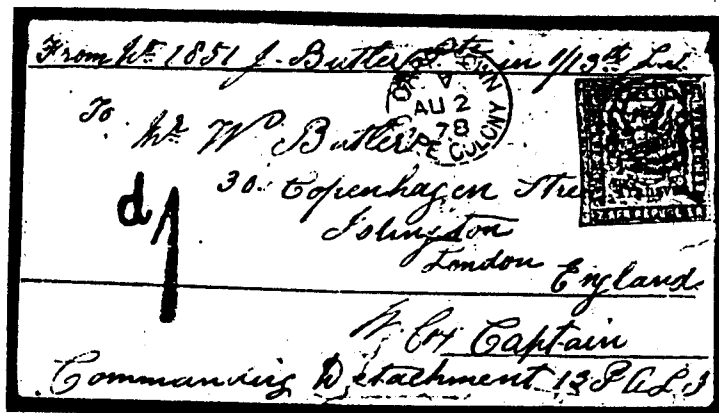 From No 1851 J. Butler Pte in 1/13th L.I.
CAPE TOWN
A
AU 2
78
CAPE COLONY
To
Mr W Butler
30 Copenhagen Stre
Islington
London
England
d 1
Captain
Commanding Detachment 13 P A L I